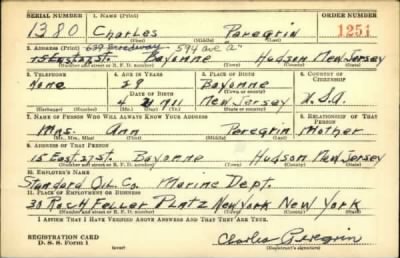 SERIAL NUMBER 1. NAME (Print) ORDER NUMBER
1380 Charles Peregrin 1251
(First) (Middle) (Last)
2. ADDRESS (Print) 639 Broadway 594 ave "a"
15 East 27 St. Bayonne Hudson New Jersey
(Number and street or R. F. D. number) (Town) (County) (State)
3. TELEPHONE 4. AGE IN YEARS 5. PLACE OF BIRTH 6. COUNTRY OF CITIZENSHIP
None 28 Bayonne
DATE OF BIRTH (Town or county)
4 1911 New Jersey U.S.A
(Exchange) (Number) (Mo.) (Day) (Yr.) (State or country)
7. NAME OF PERSON WHO WILL ALWAYS KNOW YOUR ADDRESS 8. RELATIONSHIP OF THAT PERSON
Mrs. Ann Peregrin Mother
(Mr., Mrs., Miss) (First) (Middle) (Last)
9. ADDRESS OF THAT PERSON
15 East. 27 St. Bayonne Hudson New Jersey
(Number and street or R. F. D. number) (Town) (County) (State)
10. EMPLOYER'S NAME
Standard Oil Co. Marine Dept.
11. PLACE OF EMPLOYMENT OR BUSINESS
30 Rock Feller Platz New York New York
(Number and street or R. F. D. number) (Town) (County) (State)
I AFFIRM THAT I HAVE VERIFIED ABOVE ANSWERS AND THAT THEY ARE TRUE.
REGISTRATION CARD Charles Peregrin
D. S. S. Form 1 (Registrant's signature)